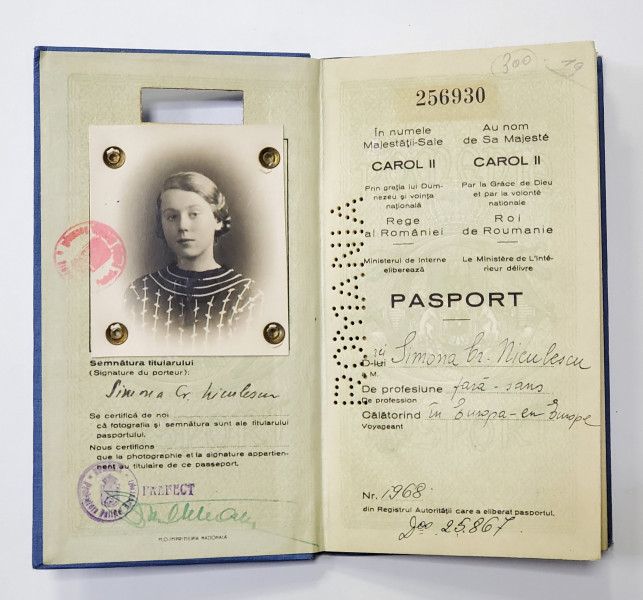 Semnătura titularului
(Signature du porteur):
Simona Cr. Niculescu
Se certifică de noi
că fotografia și semnătura sunt ale titularului
pașportului.
Nous certifions
que la photographie et la signature appartien-
nent au titulaire de ce passeport.
PREFECT
300
256930
În numele
Majestății-Sale
CAROL II
Prin grația lui Dum-
nezeu și voința
națională
Rege
al României
Ministerul de Interne
eliberează
Au nom
de Sa Majesté
CAROL II
Par la Grâce de Dieu
et par la volonté
nationale
Roi
de Roumanie
Le Ministère de L'Inté-
rieur délivre
ROMANIA
PASPORT
D-lui Simona Cr. Niculescu
De profesiune fără - sans
De profession
Călătorind în Europa - en Europe
Voyageant
Nr. 1968
din Registrul Autorității care a eliberat pașportul.
25.867